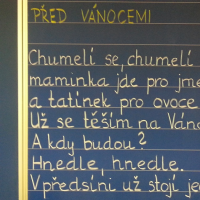 PŘED VÁNOCEMI
Chumelí se, chumelí
maminka jde pro jme
a tatínek pro ovoce
Už se těším na Váno
A kdy budou?
Hnedle, hnedle.
V předsíni už stojí je